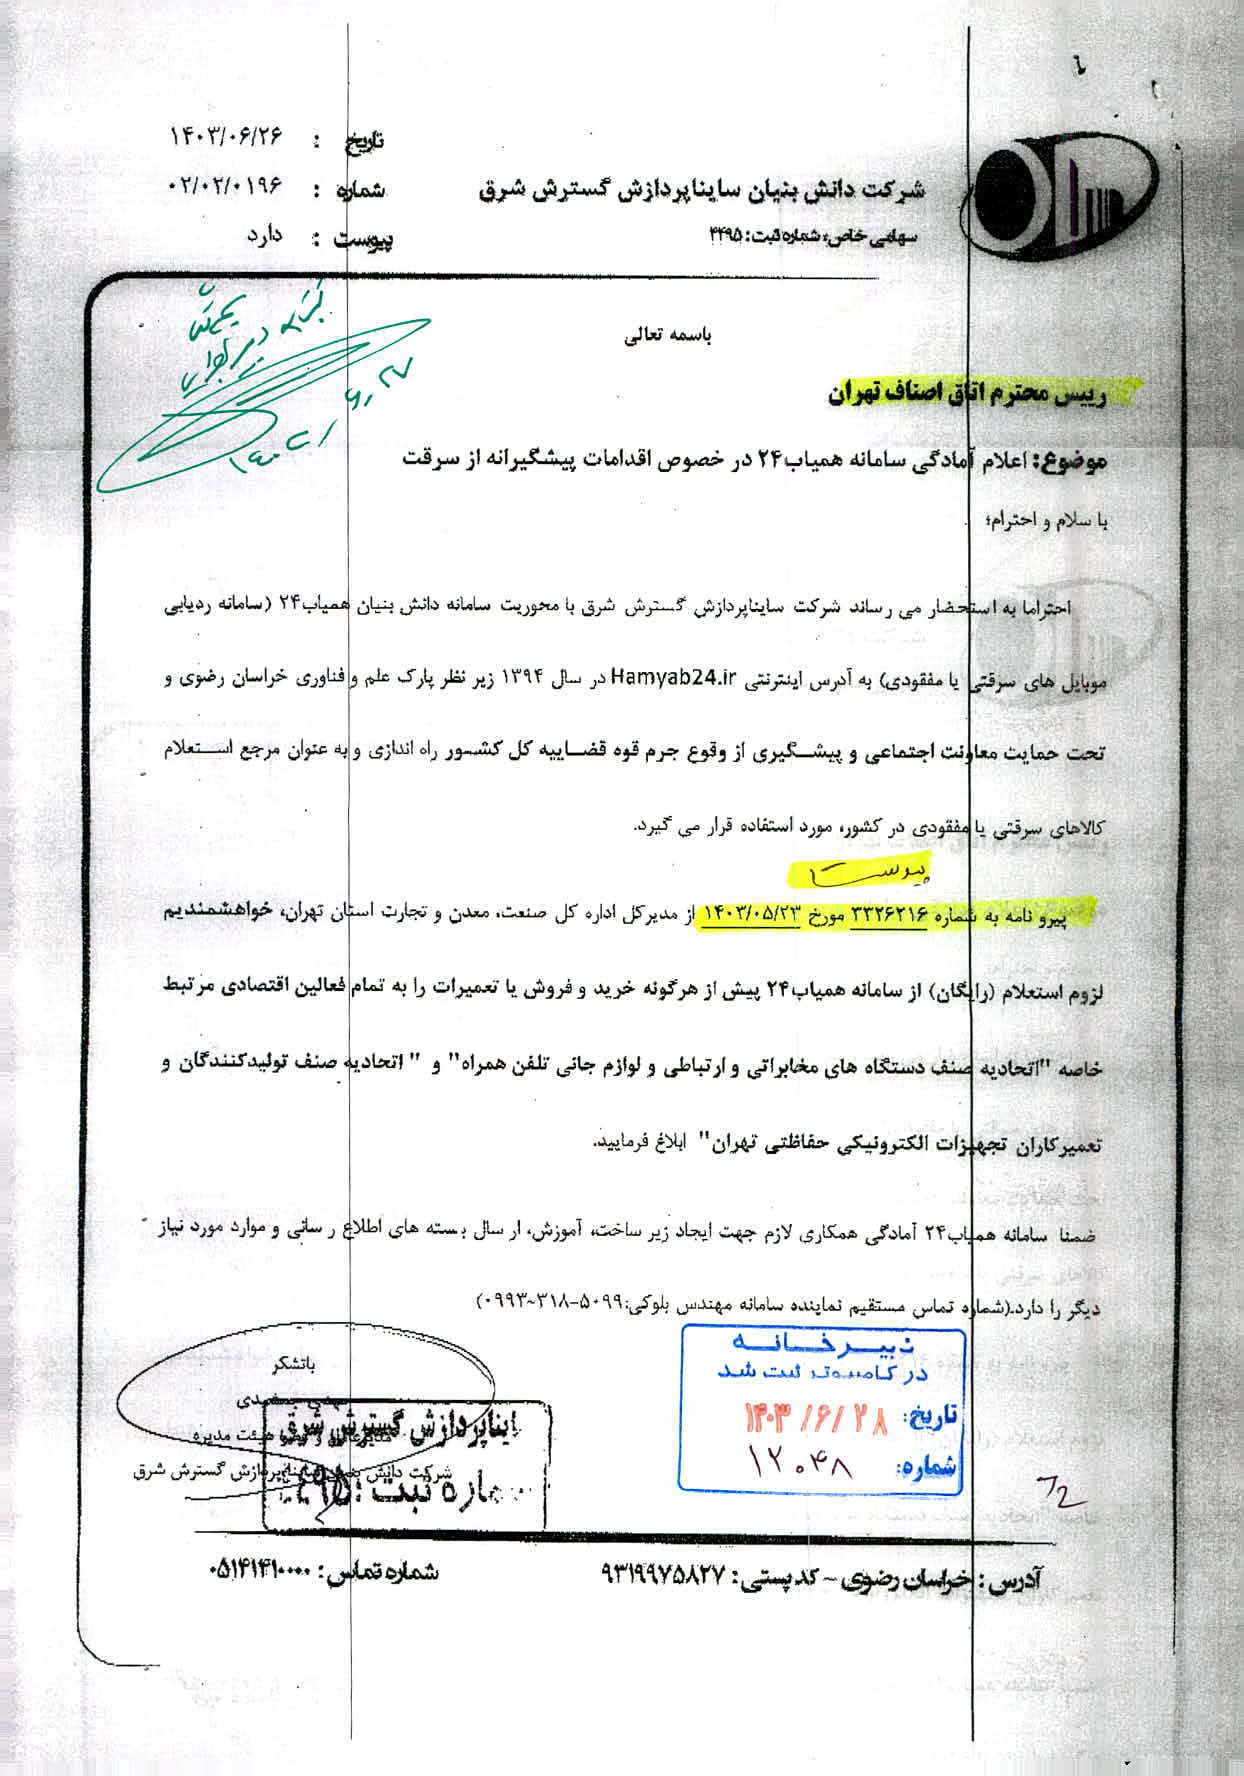 تاریخ : ۱۴۰۳/۰۶/۲۶
شرکت دانش بنیان ساینا پردازش گسترش شرق
شماره : ۰۲/۰۲/۰۱۹۶
سهامی خاص، شماره ثبت: ۴۴۹۵
پیوست : دارد
باسمه تعالی
رییس محترم اتاق اصناف تهران
موضوع: اعلام آمادگی سامانه همیاب۲۴ در خصوص اقدامات پیشگیرانه از سرقت
با سلام و احترام؛
احتراما به استحضار می رساند شرکت ساینا پردازش گسترش شرق با محوریت سامانه دانش بنیان همیاب۲۴ (سامانه ردیابی
موبایل های سرقتی یا مفقودی) به آدرس اینترنتی Hamyab24.ir در سال ۱۳۹۴ زیر نظر پارک علم و فناوری خراسان رضوی و
تحت حمایت معاونت اجتماعی و پیشگیری از وقوع جرم قوه قضاییه کل کشور راه اندازی و به عنوان مرجع استعلام
کالاهای سرقتی یا مفقودی در کشور، مورد استفاده قرار می گیرد.
پیوست
پیرو نامه به شماره ۳۳۲۶۲۱۶ مورخ ۱۴۰۳/۰۵/۲۳ از مدیرکل اداره کل صنعت، معدن و تجارت استان تهران، خواهشمندیم
لزوم استعلام (رایگان) از سامانه همیاب۲۴ پیش از هرگونه خرید و فروش یا تعمیرات را به تمام فعالین اقتصادی مرتبط
خاصه "اتحادیه صنف دستگاه های مخابراتی و ارتباطی و لوازم جانی تلفن همراه" و " اتحادیه صنف تولیدکنندگان و
تعمیرکاران تجهیزات الکترونیکی حفاظتی تهران" ابلاغ فرمایید.
ضمنا سامانه همیاب۲۴ آمادگی همکاری لازم جهت ایجاد زیر ساخت، آموزش، ارسال بسته های اطلاع رسانی و موارد مورد نیاز
دیگر را دارد.(شماره تماس مستقیم نماینده سامانه مهندس بلوکی:۵۰۹۹-۳۱۸-۰۹۹۳)
باتشکر
مهدی جمشیدی
مدیرعامل و عضو هیئت مدیره
شرکت دانش بنیان ساینا پردازش گسترش شرق
ایناپردازش گسترش شرق
شماره ثبت :
دبیرخانه
در کامپیوتر ثبت شد
تاریخ: ۱۴۰۳/۶/۲۸
شماره: ۱۲۰۴۸
آدرس : خراسان رضوی – کد پستی : ۹۳۱۹۹۷۵۸۲۷
شماره تماس : ۰۵۱۴۱۴۱۰۰۰۰